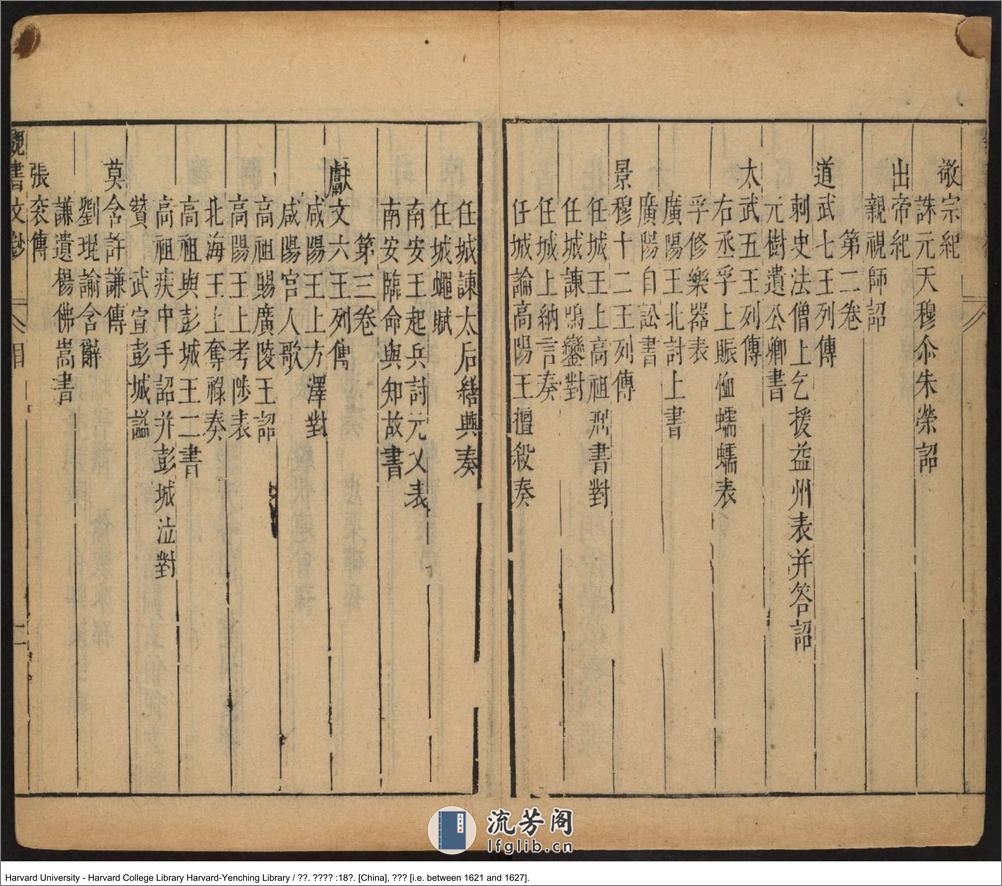 敬宗紀
誅元天穆尒朱榮詔
出帝紀
親視師詔
第二卷
道武七王列傳
刺史法僧上乞援益州表并答詔
元樹遺公卿書
太武五王列傳
右丞孚上賑恤蠕蠕表
孚修樂器表
廣陽王北討上書
廣陽自訟書
景穆十二王列傳
任城王上高祖䵻書對
任城諫鳴鑾對
任城上納言奏
任城論高陽王擅殺奏
任城諫太后繕興奏
任城蠅賦
南安王起兵討元乂表
南安臨命與知故書
第三卷
獻文六王列傳
咸陽王上方澤對
咸陽宮人歌
高祖賜廣陵王詔
高陽王上考陟表
北海王上奪祿奏
高祖與彭城王二書
高祖疾中手詔并彭城泣對
贊 武宣彭城謚
莫含許謙傳
劉琨諭含辭
謙遺楊佛嵩書
張袞傳
魏書文鈔 目 二
流芳阁
lfglib.cn
Harvard University - Harvard College Library Harvard-Yenching Library / ??. ???? :18?. [China], ??? [i.e. between 1621 and 1627].